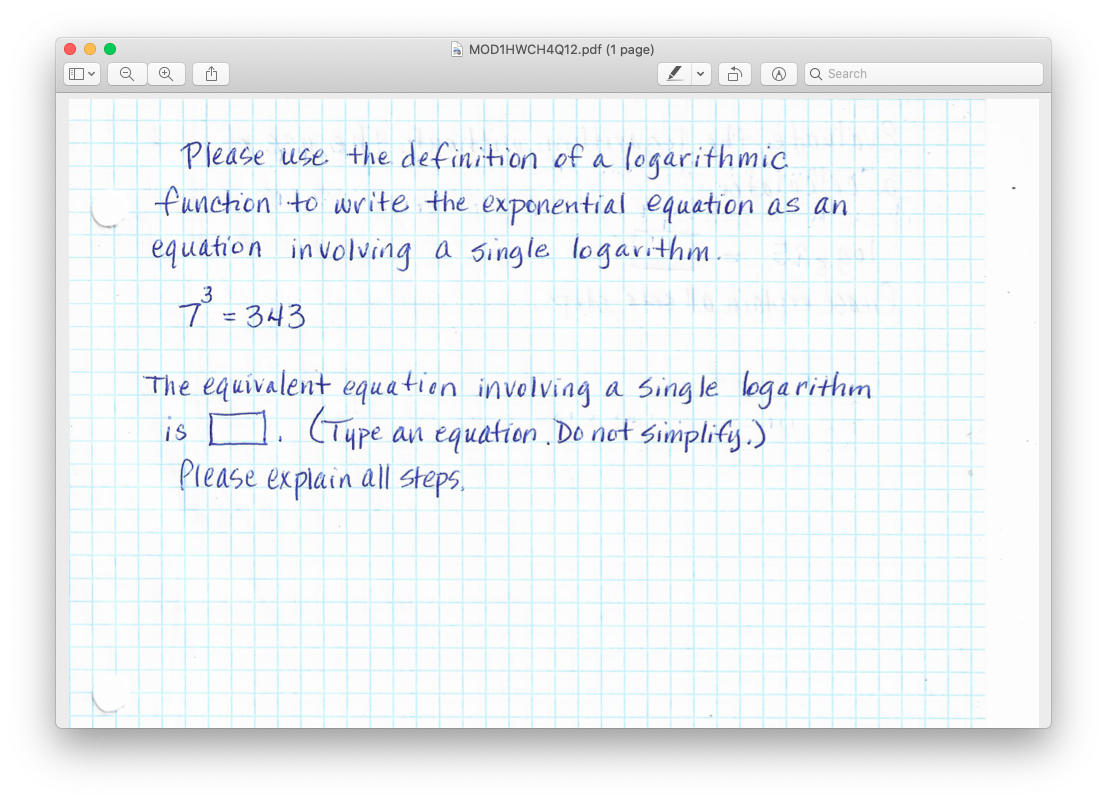 MOD1HWCH4Q12.pdf (1 page)
Search
Please use the definition of a logarithmic
function to write the exponential equation as an
equation involving a single logarithm.
7³ = 343
The equivalent equation involving a single logarithm
is . (Type an equation. Do not simplify.)
Please explain all steps.